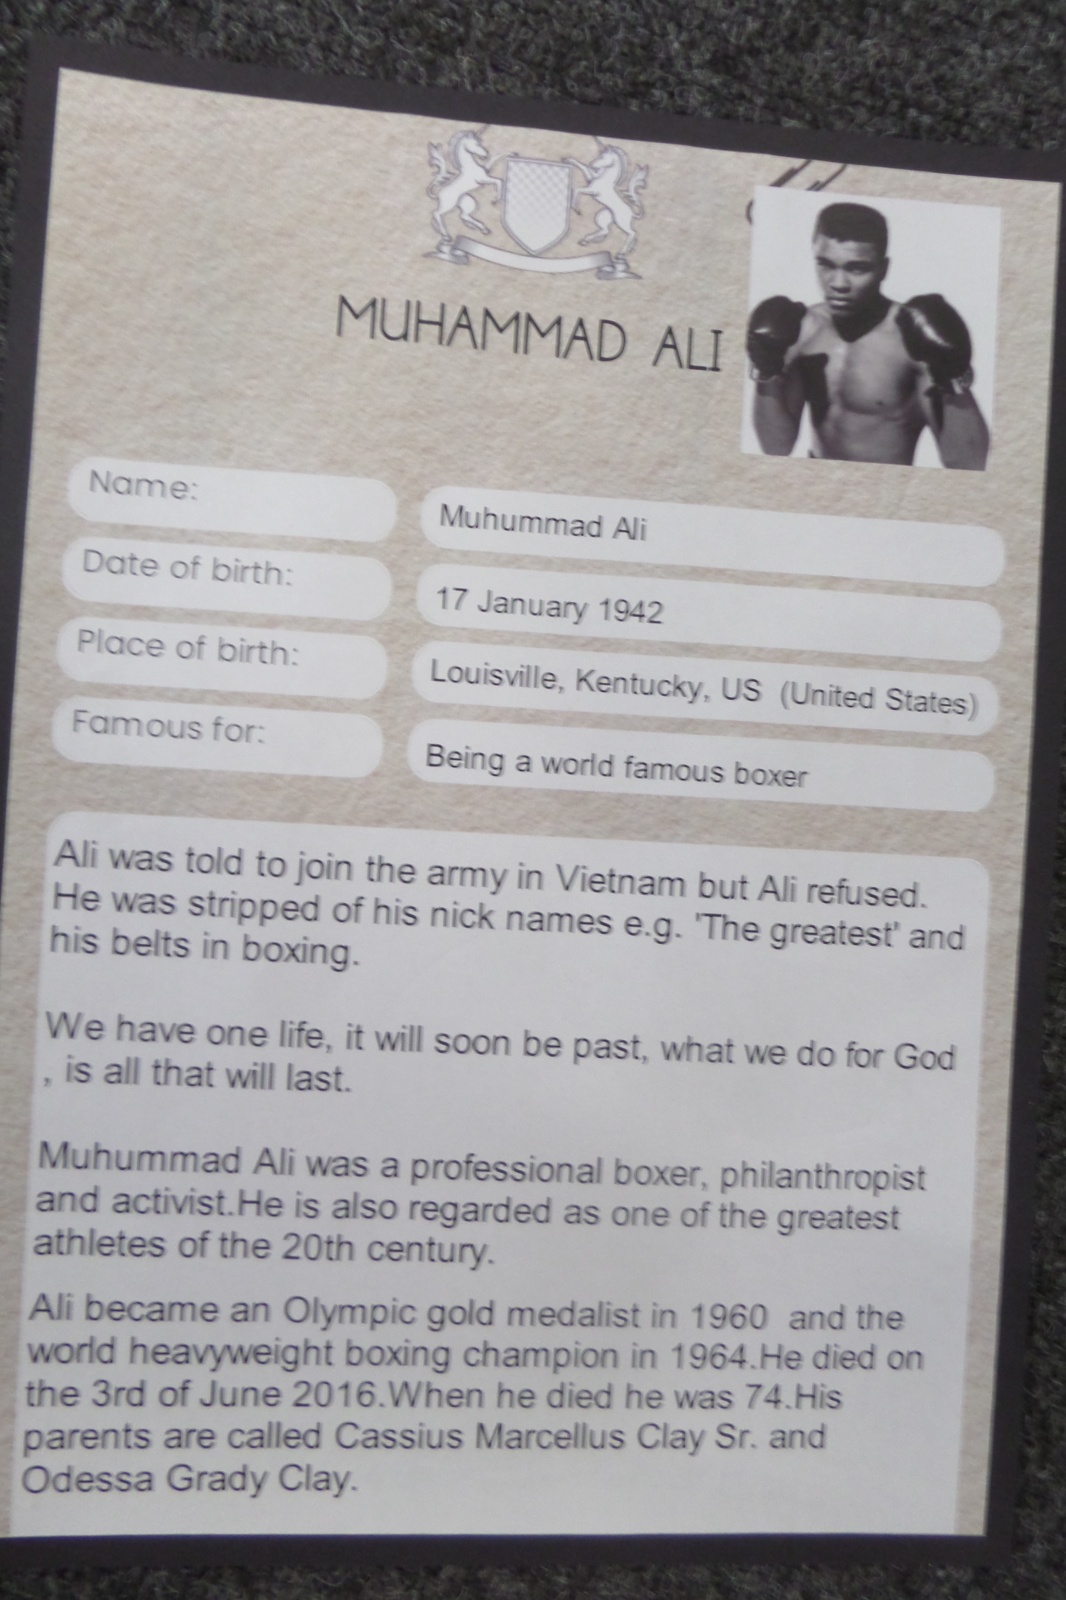 MUHAMMAD ALI
Name:
Muhummad Ali
Date of birth:
17 January 1942
Place of birth:
Louisville, Kentucky, US (United States)
Famous for:
Being a world famous boxer
Ali was told to join the army in Vietnam but Ali refused.
He was stripped of his nick names e.g. 'The greatest' and
his belts in boxing.
We have one life, it will soon be past, what we do for God
, is all that will last.
Muhummad Ali was a professional boxer, philanthropist
and activist.He is also regarded as one of the greatest
athletes of the 20th century.
Ali became an Olympic gold medalist in 1960 and the
world heavyweight boxing champion in 1964.He died on
the 3rd of June 2016.When he died he was 74.His
parents are called Cassius Marcellus Clay Sr. and
Odessa Grady Clay.